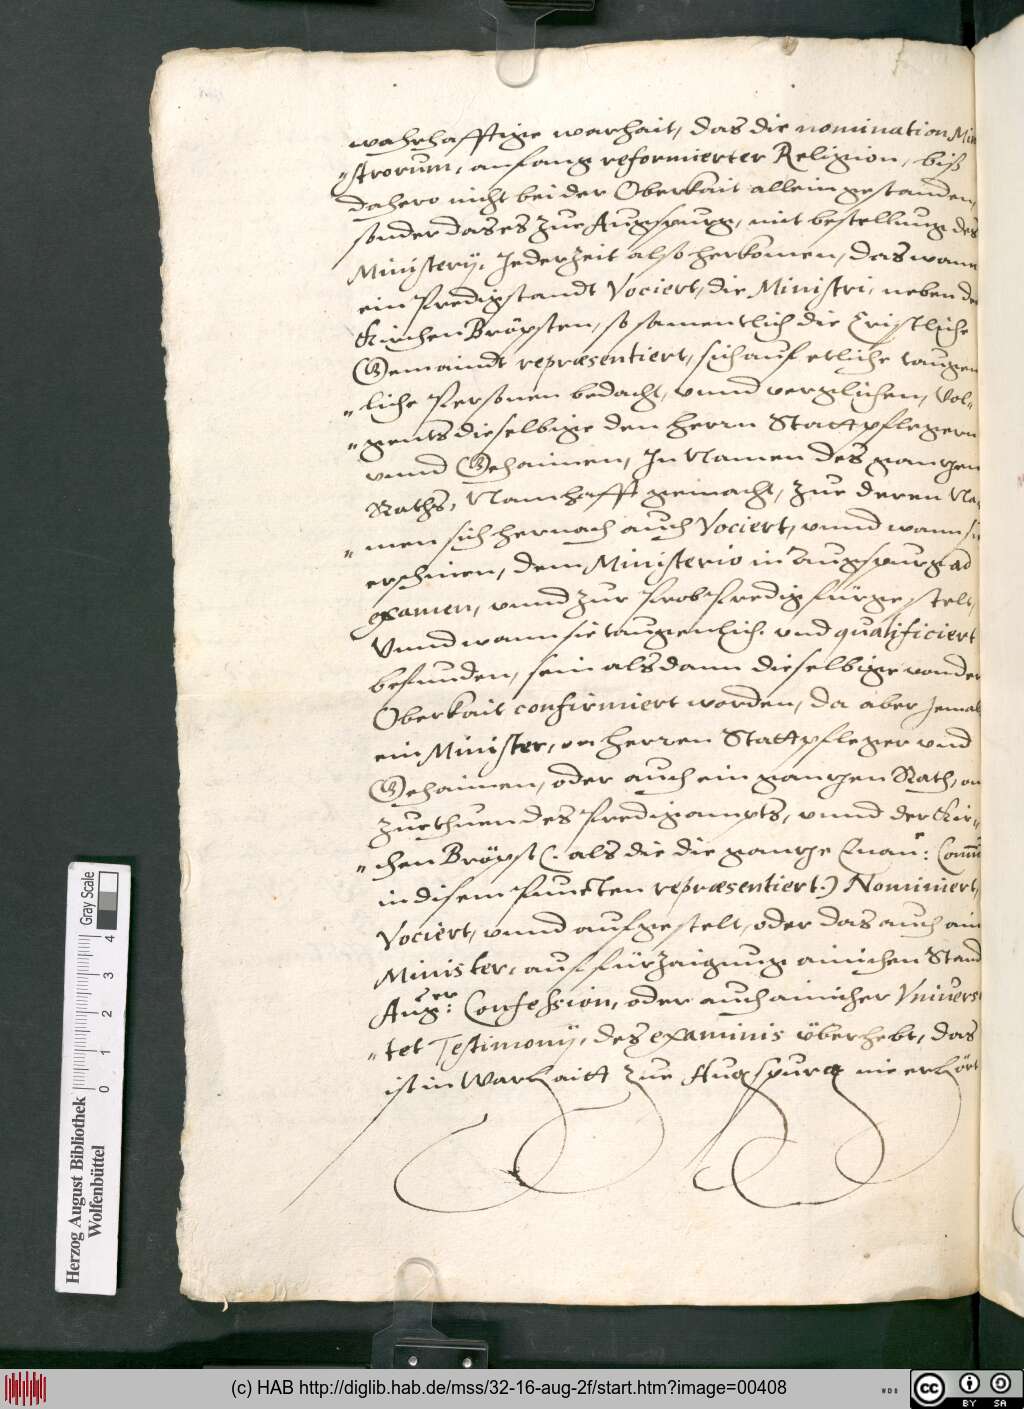 wahrhafftige warhait, das die nomination Mini
„strorum, anfang reformierter Religion, biß
dahero nicht bei der Oberkait allein gestanden,
sonder das es zue Augspurg, mit bestellung des
Ministerÿ, Jederzeit also herkomen, das wann
ein Predigstandt Vociert, die Ministri, neben den
Kirchen Bröpsten, so samentlich die Cristliche
Gemaindt repræsentiert, sich auf etliche taugen
„liche Personen bedacht, vnnd verglichen, Vol„
„gents dieselbige den herrn Stattpflegern
vnnd Gehaimen, In Namen des gantzen
Raths, Namhafft gemacht, zue deren Na„
„men sich hernach auch Vociert, vnnd wann sie
erschinen, dem Ministerio in Augspurg ad
examen, vnnd zur Prob Predig fürgestelt,
Vnnd wann sie taugenlich. vnd qualificiert
befunden, sein alsdann dieselbige von der
Oberkait confirmiert worden, da aber Jemals
ein Minister, von herren Stattpfleger vnd
Gehaimen, oder auch ein gantzen Rath, on
zuethuen des Predigampts, vnnd der Kir„
„chen Bröpst (. als die die gantze Euan: Comun
in disem Puncten repræsentiert.) Nominiert,
Vociert, vnnd aufgestelt, oder das auch ain
Minister, auf fürzaigung ainichen Stand
Aug:er Confession, oder auch ainicher Vniversi
„tet Testimonÿ, des examinis vberhebt, das
ist in Warhaitt zue Augspurg nie erhört
Gray Scale
0 1 2 3 4
Herzog August Bibliothek
Wolfenbüttel
(c) HAB http://diglib.hab.de/mss/32-16-aug-2f/start.htm?image=00408
WDB
cc
BY SA